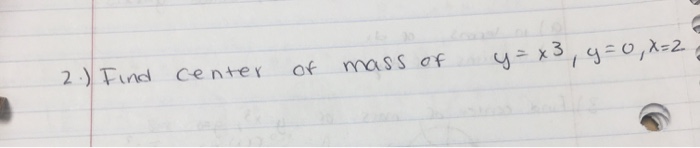 2.) Find center of mass of y = x³, y = 0, x = 2